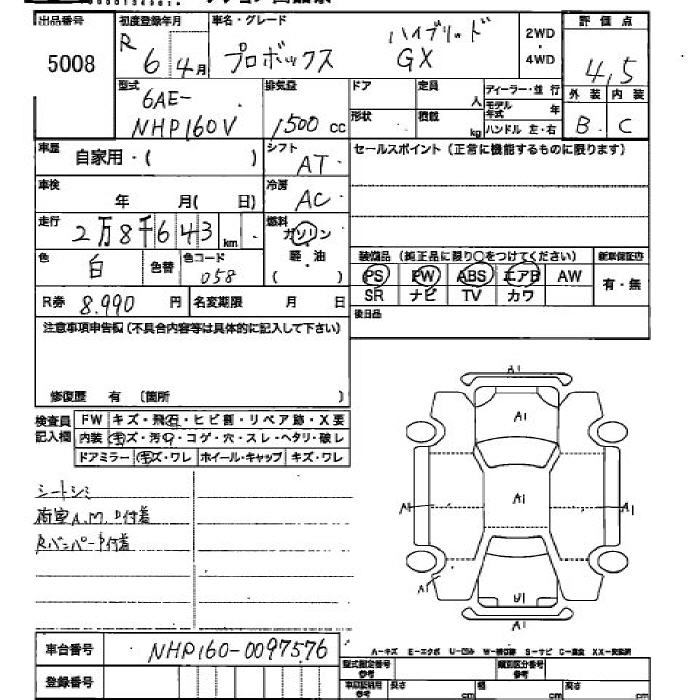 出品番号 初度登録年月 車名・グレード 評価点
5008 R 6 4月 プロボックス ハイブリッド GX 2WD・4WD 4,5
外装 内装
B C
型式 排気量 ドア 定員 人 ディーラー・並行
6AE-NHP160V 1500 cc 形状 積載 kg モデル年式 年
ハンドル 左・右
車歴 自家用・( ) シフト AT セールスポイント(正常に機能するものに限ります)
車検 年 月( 日) 冷房 AC
走行 2万8千643 km 燃料 ガソリン
軽・油
( )
色 白 色替 色コード 058
装備品(純正品に限り○をつけてください) 新車保証書
PS PW ABS エアB AW 有・無
SR ナビ TV カワ
R券 8.990 円 名変期限 月 日
後日品
注意事項申告欄(不具合内容等は具体的に記入して下さい)
修復歴 有 〔箇所 〕
検査員記入欄 FW キズ・飛石・ヒビ割・リペア跡・X要
内装 キズ・汚レ・コゲ・穴・スレ・ヘタリ・破レ
ドアミラー キズ・ワレ ホイール・キャップ キズ・ワレ
シートシミ
荷室A.M.P付着
RバンパーP付着
A1
A1
A1
A1
A1
A1
A1
A1
A1
A-キズ E-エクボ U-凹み W-補修跡 S-サビ C-腐食 XX-交換済
車台番号 NHP160-0097576
登録番号
型式指定番号 参考 類別区分番号 参考
車庫証明用 参考 長さ cm 幅 cm 高さ cm